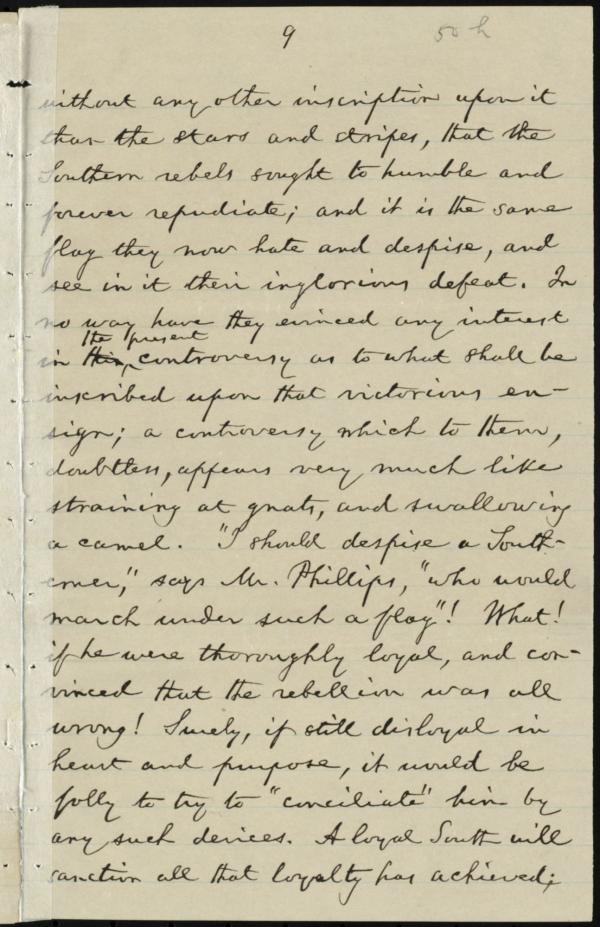 9
50 h
without any other inscription upon it
than the stars and stripes, that the
Southern rebels sought to humble and
forever repudiate; and it is the same
flag they now hate and despise, and
see in it their inglorious defeat. In
no way have they evinced any interest
the present
in this controversy as to what shall be
inscribed upon that victorious en-
sign; a controversy which to them,
doubtless, appears very much like
straining at gnats, and swallowing
a camel. "I should despise a South-
erner," says Mr. Phillips, "who would
march under such a flag"! What!
if he were thoroughly loyal, and con-
vinced that the rebellion was all
wrong! Surely, if still disloyal in
heart and purpose, it would be
folly to try to "conciliate" him by
any such devices. A loyal South will
sanction all that loyalty has achieved;